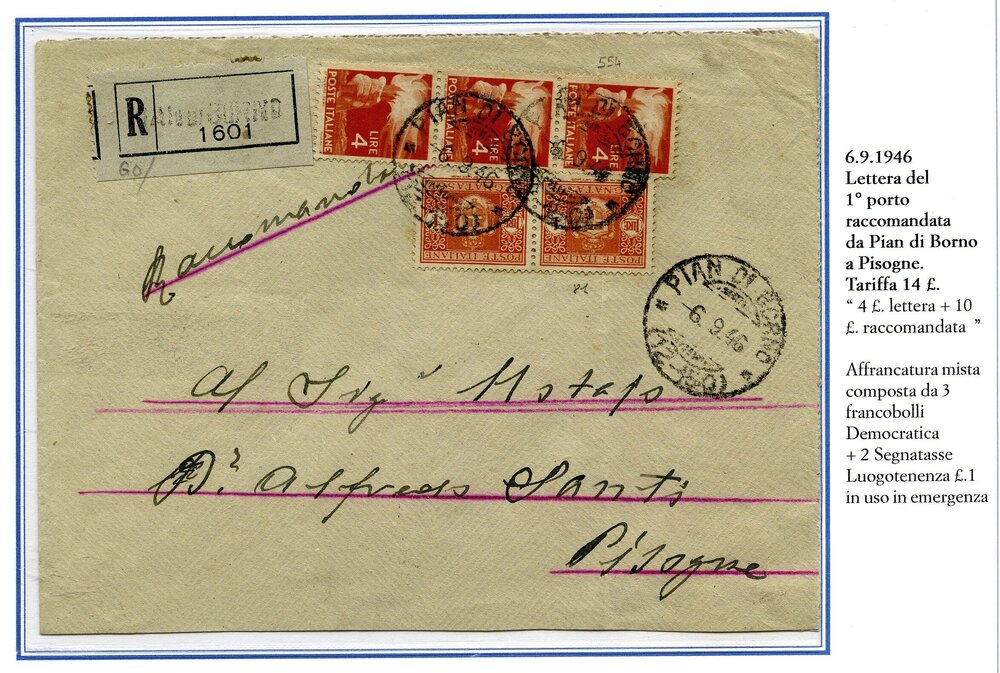 554
R PIAN di BORNO
1601
60/
POSTE ITALIANE LIRE 4
POSTE ITALIANE LIRE 4
POSTE ITALIANE LIRE 4
PIAN DI BORNO
6.9.46
PIAN DI BORNO
6.9.46
Raccomandata
SEGNATASSE
POSTE ITALIANE
POSTE ITALIANE
PIAN DI BORNO
-6.9.46
Al Sig
Dr Alfredo Santi
Pisogne
6.9.1946
Lettera del
1° porto
raccomandata
da Pian di Borno
a Pisogne.
Tariffa 14 £.
“ 4 £. lettera + 10
£. raccomandata ”
Affrancatura mista
composta da 3
francobolli
Democratica
+ 2 Segnatasse
Luogotenenza £.1
in uso in emergenza